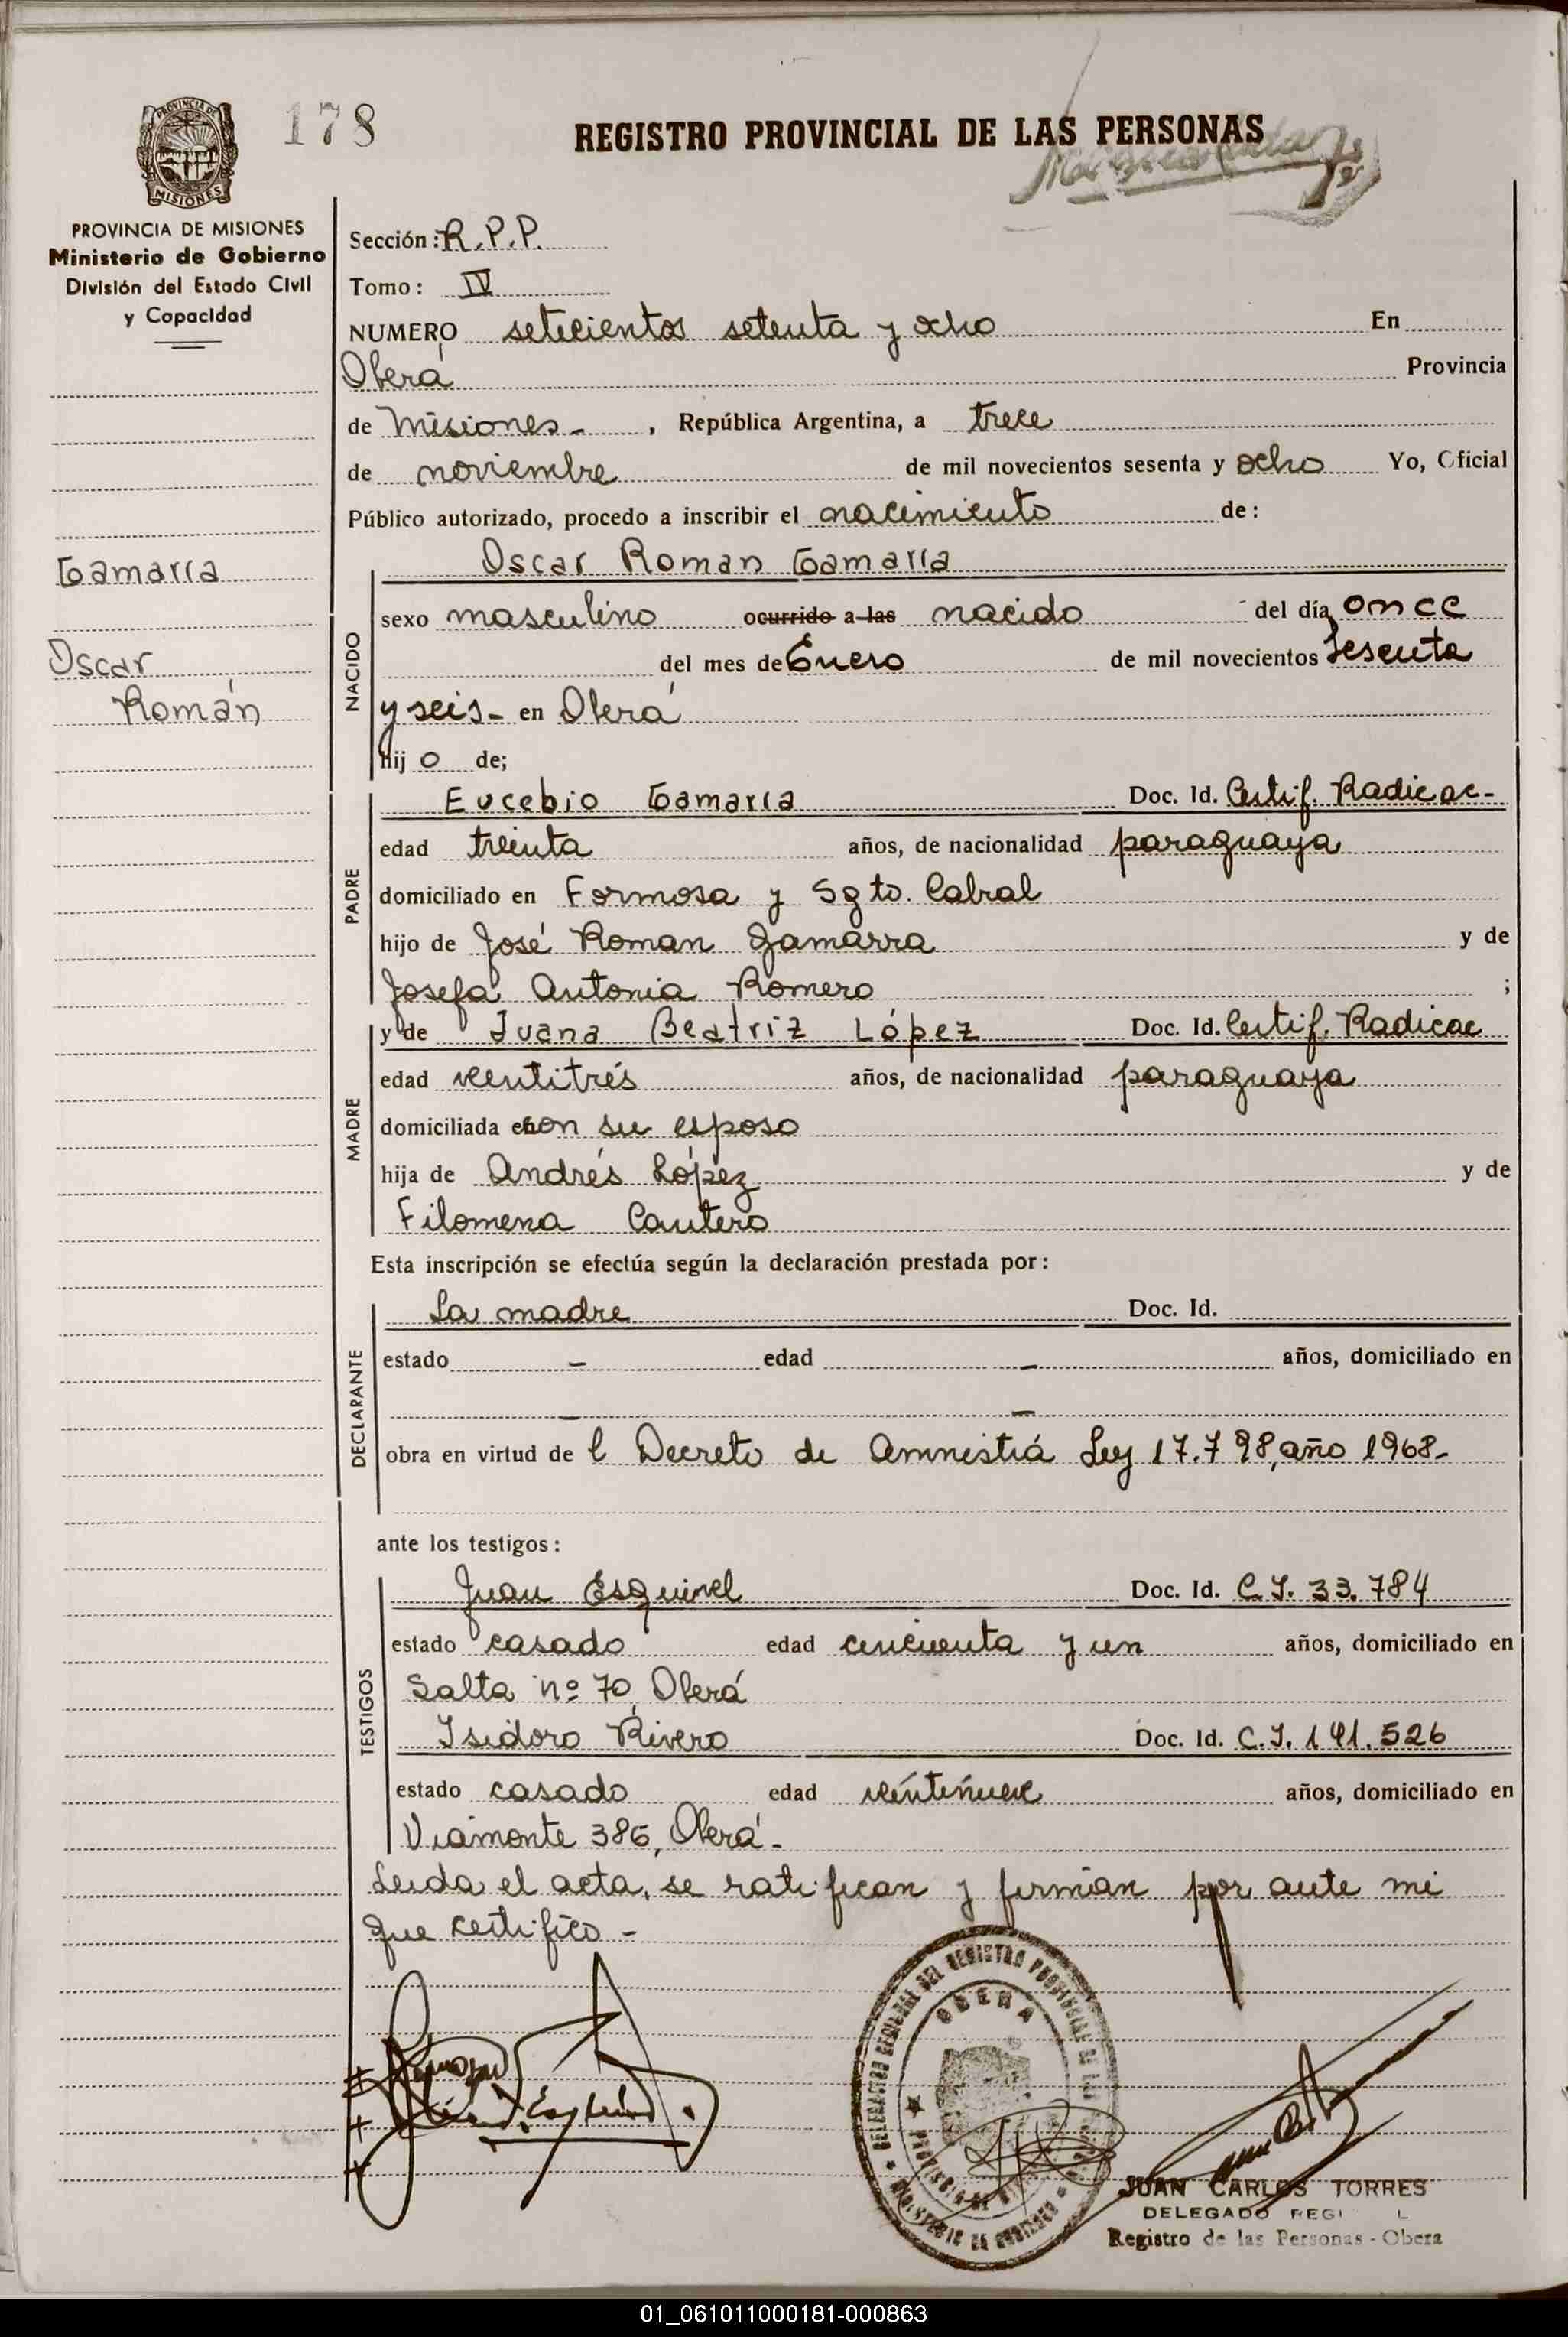 178
REGISTRO PROVINCIAL DE LAS PERSONAS
PROVINCIA DE
MISIONES
PROVINCIA DE MISIONES
Ministerio de Gobierno
División del Estado Civil
y Capacidad
Gamarra
Oscar
Román
Sección: R.P.P.
Tomo: IV
NUMERO setecientos setenta y ocho En
Oberá Provincia
de Misiones - , República Argentina, a trece
de noviembre de mil novecientos sesenta y ocho Yo, Oficial
Público autorizado, procedo a inscribir el nacimiento de:
Oscar Roman Gamarra
NACIDO
sexo masculino ocurrido a las nacido del día once
del mes de Enero de mil novecientos sesenta
y seis - en Oberá
hijo de;
PADRE
Eucebio Gamarra Doc. Id. Certif. Radicac-
edad treinta años, de nacionalidad paraguaya
domiciliado en Formosa y Sgto. Cabral
hijo de José Roman Gamarra y de
Josefa Antonia Romero ;
MADRE
y de Juana Beatriz López Doc. Id. Certif. Radicac
edad ventitrés años, de nacionalidad paraguaya
domiciliada con su esposo
hija de Andrés López y de
Filomena Cantero
Esta inscripción se efectúa según la declaración prestada por:
DECLARANTE
La madre Doc. Id.
estado - edad - años, domiciliado en
- -
obra en virtud del Decreto de Amnistiá Ley 17.798, año 1968-
ante los testigos:
TESTIGOS
Juan Esquivel Doc. Id. C.I. 33.784
estado casado edad cincuenta y un años, domiciliado en
Salta nº 70, Oberá
Isidoro Rivero Doc. Id. C.I. 191.526
estado casado edad ventinueve años, domiciliado en
Viamonte 386, Oberá-
Leida el acta, se ratifican y firman por ante mi
que certifico -
DELEGACION REGIONAL DEL REGISTRO PROVINCIAL DE LAS
OBERA
PROVINCIA DE
MINISTERIO DE GOBIERNO
JUAN CARLOS TORRES
DELEGADO REGI L
Registro de las Personas - Obera
01_061011000181-000863